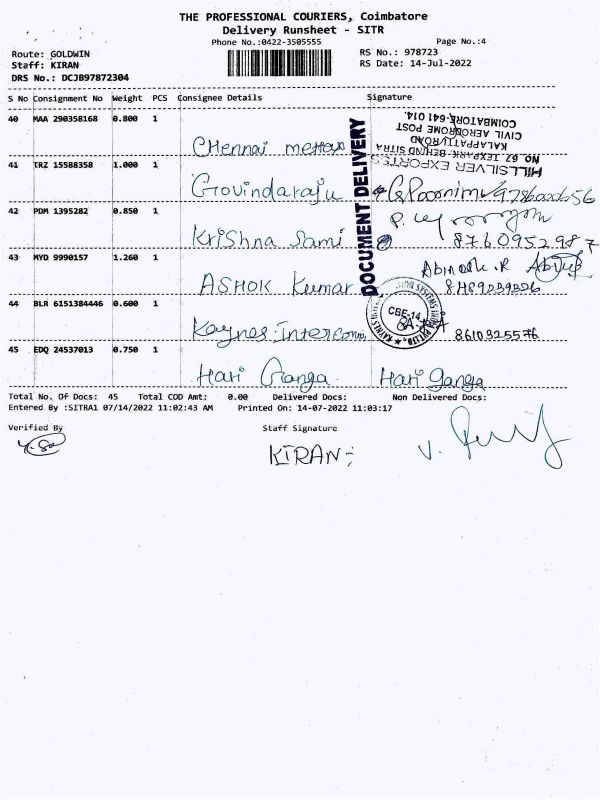 THE PROFESSIONAL COURIERS, Coimbatore
Delivery Runsheet - SITR
Phone No.:0422-3505555
Page No.:4
Route: GOLDWIN
Staff: KIRAN
DRS No.: DCJB97872304
RS No.: 978723
RS Date: 14-Jul-2022
S No Consignment No Weight PCS Consignee Details Signature
40 MAA 290358168 0.800 1
Chennai
HILLSILVER EXPORTS
NO. 67, TEXPARK- BEHIND SITRA
KALAPPATTI ROAD
CIVIL AERODROME POST
COIMBATORE-641 014.
DOCUMENT DELIVERY
41 TRZ 15588358 1.000 1
Govindaraju G. Poornima
42 PDM 1395282 0.850 1
Krishna Sami 8760952987
43 MYD 9990157 1.260 1
ASHOK Kumar
44 BLR 6151384446 0.600 1
Kaynes-Interconn CBE-14. 8610325576
45 EDQ 24537013 0.750 1
Hari Ganga Hari ganga
Total No. Of Docs: 45 Total COD Amt: 0.00 Delivered Docs: Non Delivered Docs:
Entered By :SITRA1 07/14/2022 11:02:43 AM Printed On: 14-07-2022 11:03:17
Verified By Staff Signature
KIRAN